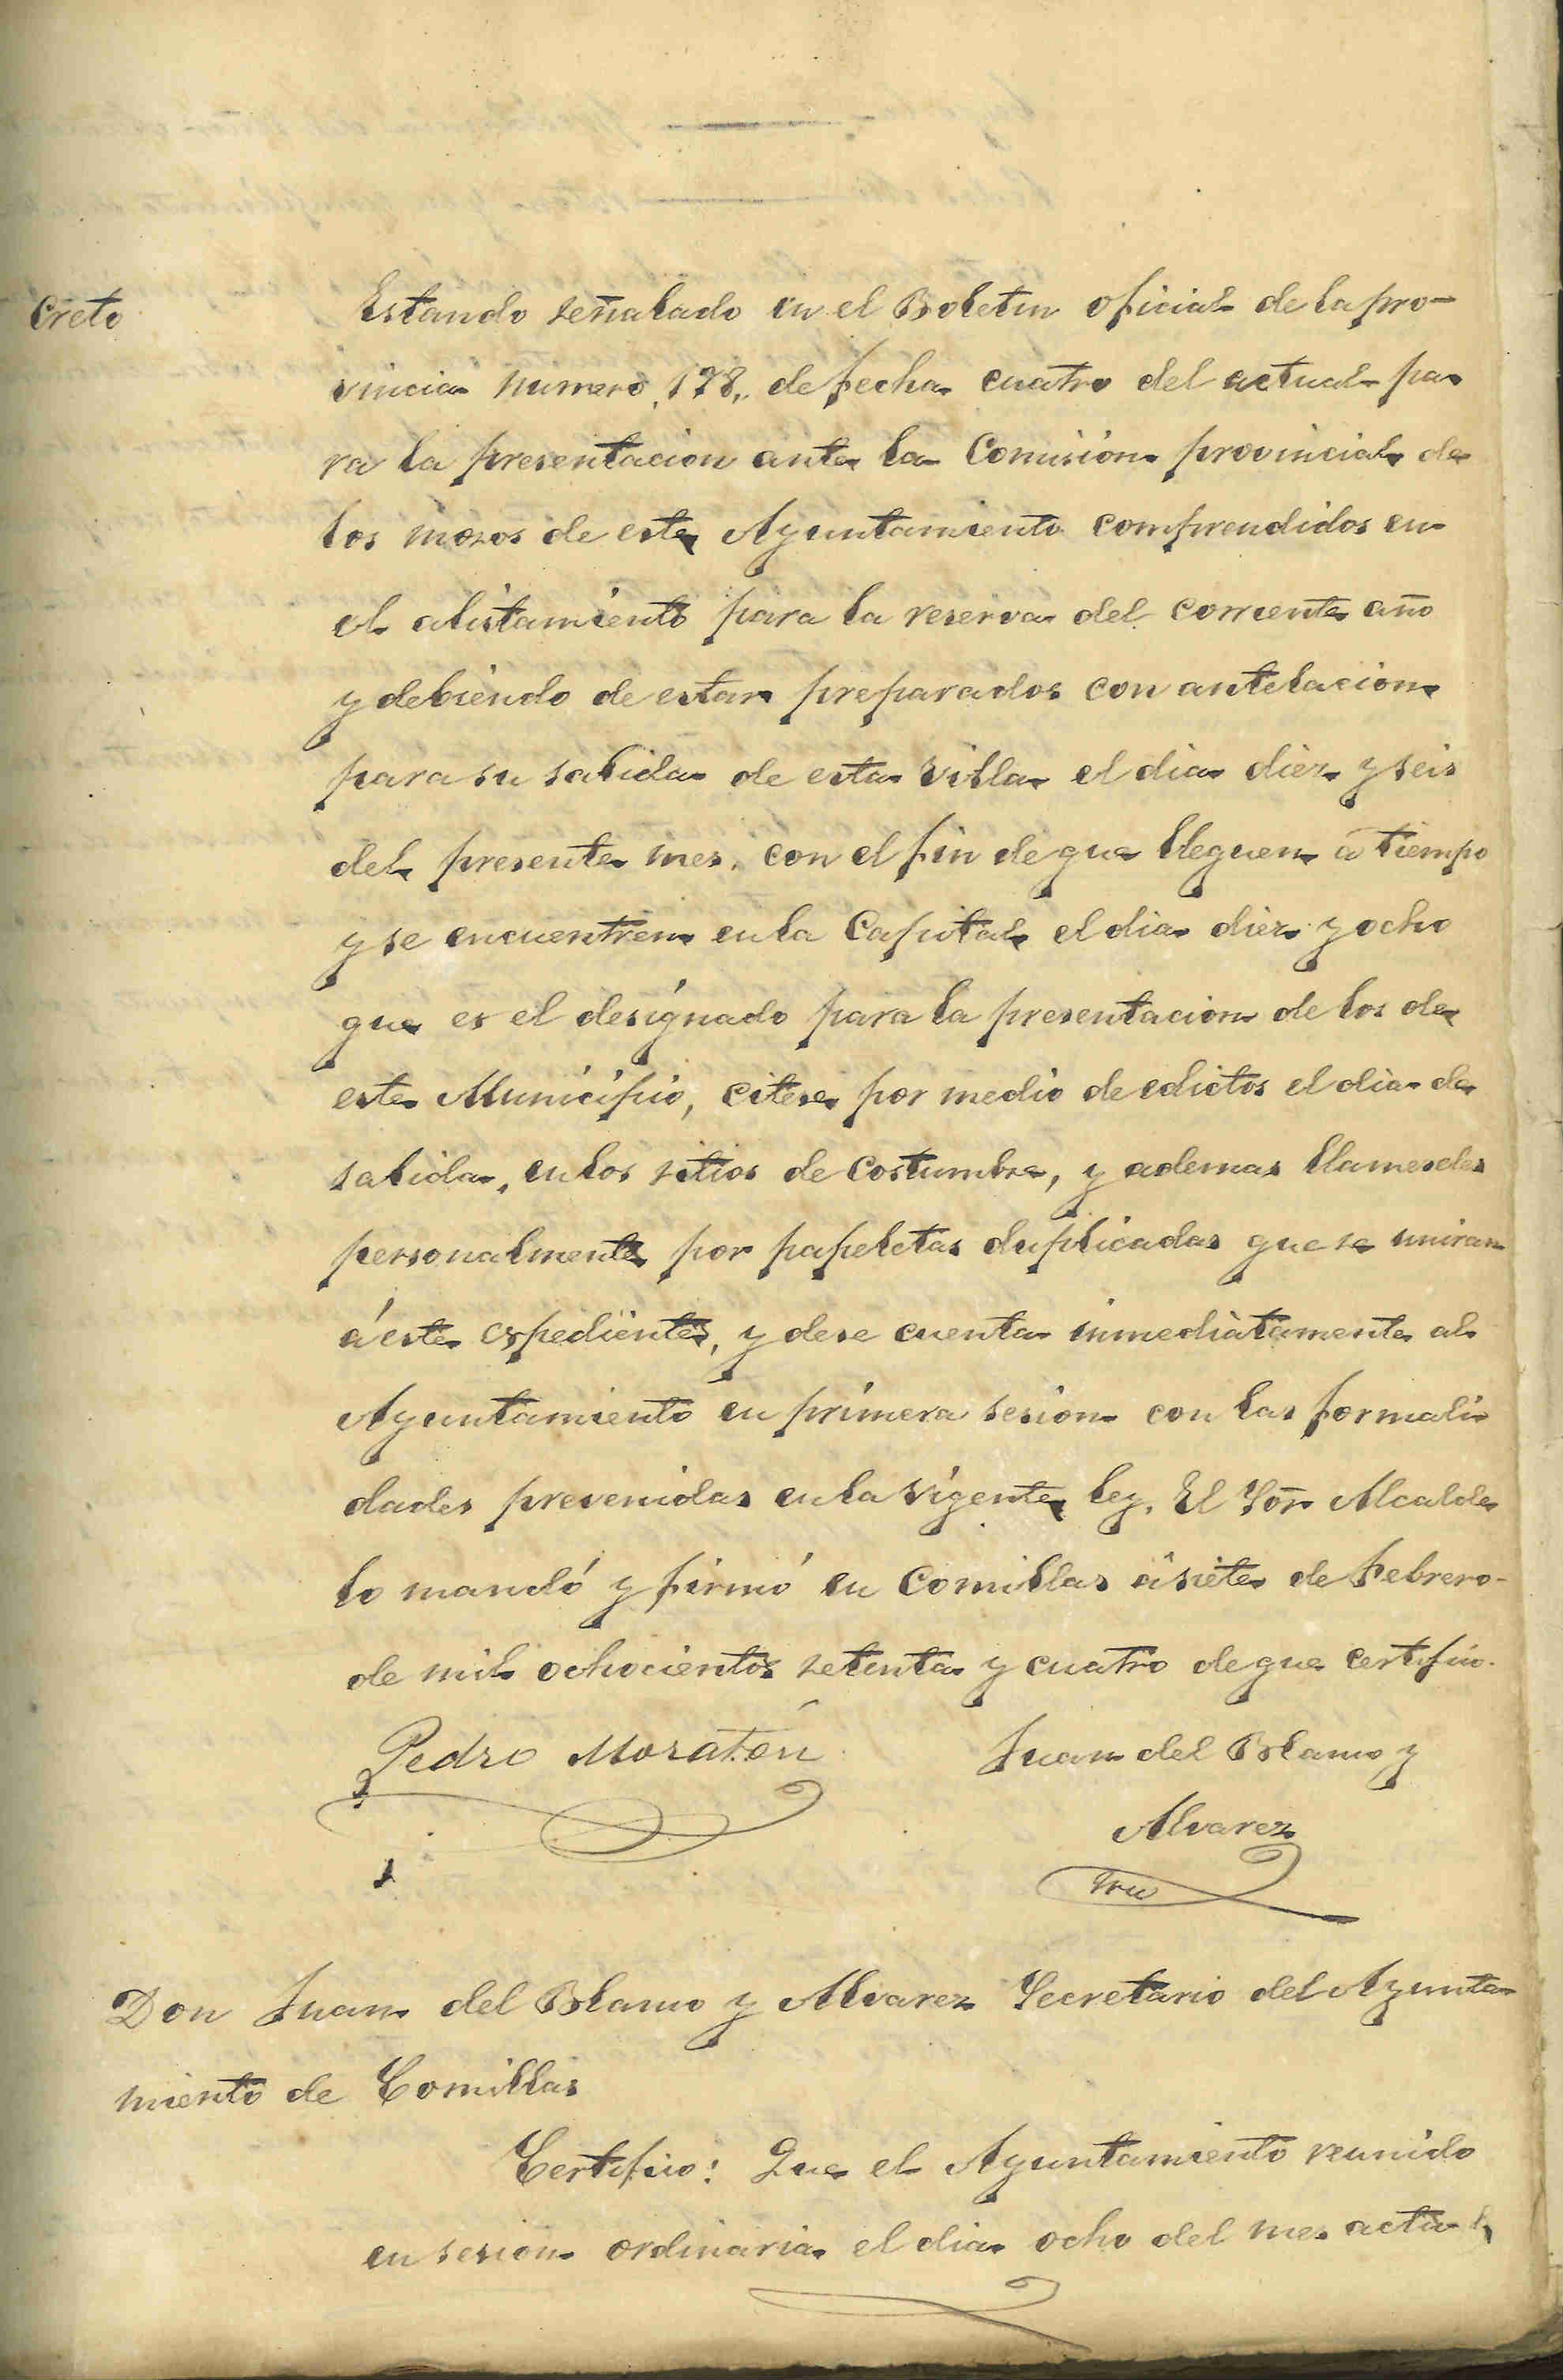 creto
Estando señalado en el Boletin oficial de la pro-
vincia numero, 178,, de fecha cuatro del actual pa-
ra la presentacion ante la Comision provincial de
los mozos de este Ayuntamiento comprendidos en
el alistamiento para la reserva del corriente año
y debiendo de estar preparados con antelacion
para su salida de esta Villa el dia diez y seis
del presente mes, con el fin de que lleguen a tiempo
y se encuentren en la Capital el dia diez y ocho
que es el designado para la presentacion de los de
este Municipio, citese por medio de edictos el dia de
salida, en los sitios de costumbre, y ademas llameseles
personalmente por papeletas duplicadas que se uniran
á este espediente, y dese cuenta inmediatamente al
Ayuntamiento en primera sesion con las formali-
dades prevenidas en la vigente ley. El Sõr Alcalde
lo mandó y firmó en Comillas á siete de Febrero
de mil ochocientos setenta y cuatro de que certifico.
Pedro Moratón
Juan del Blamo y
Alvarez
Srio
Don Juan del Blamo y Alvarez Secretario del Ayunta-
miento de Comillas
Certifico: Que el Ayuntamiento reunido
en sesion ordinaria el dia ocho del mes actual